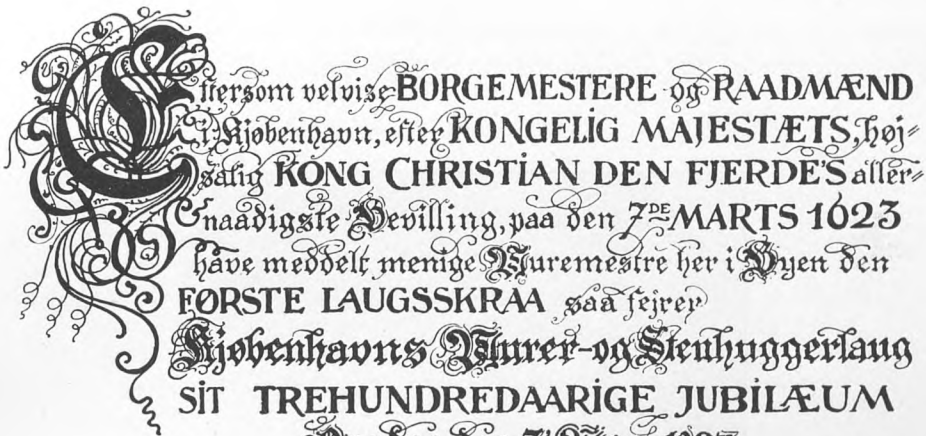 Eftersom velvise BORGEMESTERE og RAADMÆND
i Kjøbenhavn, efter KONGELIG MAJESTÆTS, høj=
salig KONG CHRISTIAN DEN FJERDE'S aller=
naadigste Bevilling, paa den 7DE MARTS 1623
have meddelt menige Muremestre her i Byen den
FØRSTE LAUGSSKRAA saa fejrer
Kjøbenhavns Murer- og Stenhuggerlaug
SIT TREHUNDREDAARIGE JUBILÆUM